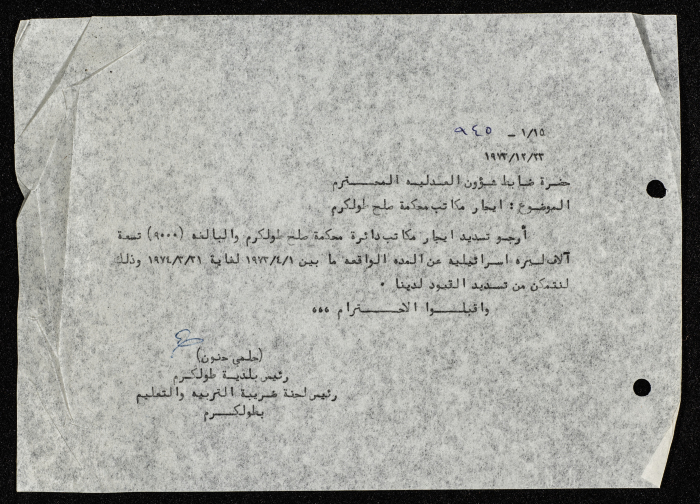 ١/١٥ – ٩٤٥
١٩٧٣/١٢/٢٣
حضرة ضابط شؤون العدليه المحـــترم
الموضوع : ايجار مكاتب محكمة صلح طولكرم
أرجو تسديد ايجار مكاتب دائرة محكمة صلح طولكرم والبالغه (٩٠٠٠) تسعة
آلاف ليره اسرائيليه عن المده الواقعه ما بين ١٩٧٣/٤/١ لغاية ١٩٧٤/٣/٣١ وذلك
لنتمكن من تسديد القيود لدينا ٠
واقبلـــوا الاحـــترام ،،،
(حلمي حنون)
رئيس بلدية طولكرم
رئيس لجنة ضريبة التربيه والتعليم
بطولكـــرم